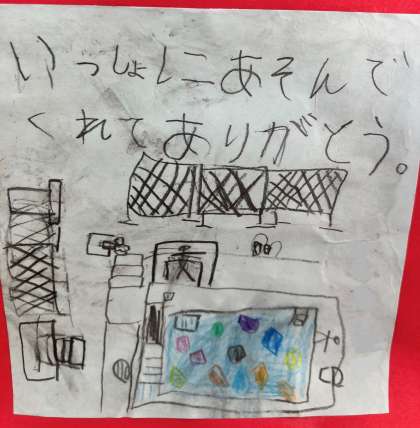 いっしょにあそんで
くれてありがとう。